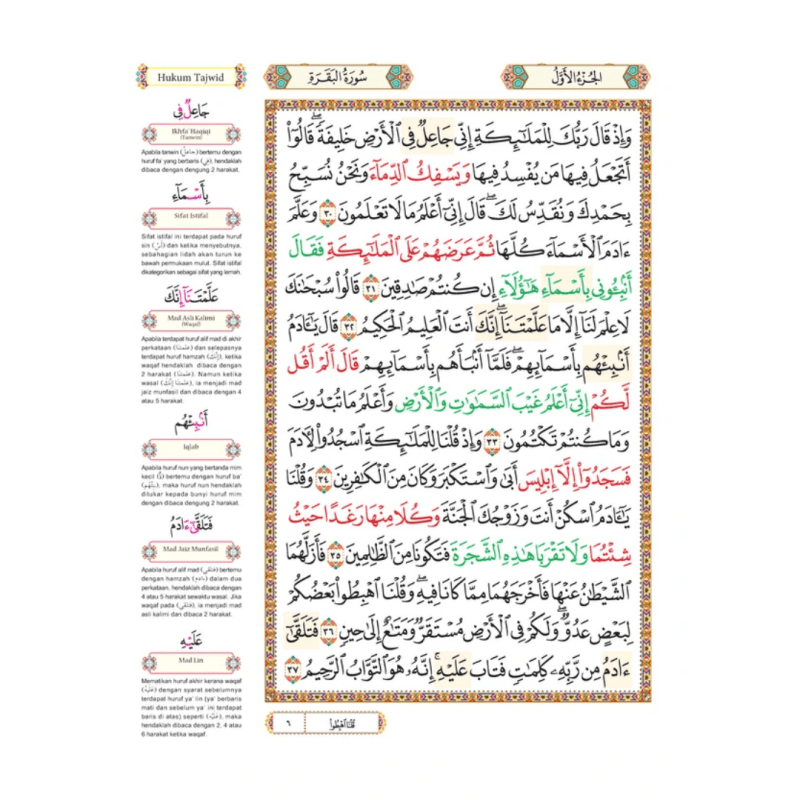 Hukum Tajwid
سُورَةُ الْبَقَرَةِ
الجُزْءُ الأَوَّلُ
جَاعِلٌ فِي
Ikhfa' Haqiqi
(Tanwin)
Apabila tanwin (جَاعِلٌ) bertemu dengan
huruf fa' yang berbaris (فِي), hendaklah
dibaca dengan dengung 2 harakat.
بِأَسْمَآءِ
Sifat Istifal
Sifat istifal ini terdapat pada huruf
sin (سْ) dan ketika menyebutnya,
sebahagian lidah akan turun ke
bawah permukaan mulut. Sifat istifal
dikategorikan sebagai sifat yang lemah.
عَلَّمْتَنَآ إِنَّكَ
Mad Asli Kalimi
(Waqaf)
Apabila terdapat huruf alif mad di akhir
perkataan (عَلَّمْتَنَا) dan selepasnya
terdapat huruf hamzah (إِنَّكَ), ketika
waqaf hendaklah dibaca dengan
2 harakat (عَلَّمْتَنَا). Namun ketika
wasal (عَلَّمْتَنَآ إِنَّكَ), ia menjadi mad
jaiz munfasil dan dibaca dengan 4
atau 5 harakat.
أَنۢبِئْهُم
Iqlab
Apabila huruf nun yang bertanda mim
kecil (نۢ) bertemu dengan huruf ba'
(بِئْهُم), maka huruf nun hendaklah
ditukar kepada bunyi huruf mim
dengan dengung 2 harakat.
فَتَلَقَّىٰٓ ءَادَمُ
Mad Jaiz Munfasil
Apabila huruf alif mad (فَتَلَقَّىٰٓ) bertemu
dengan hamzah (ءَادَمُ) dalam dua
perkataan, hendaklah dibaca dengan
4 atau 5 harakat sewaktu wasal. Jika
waqaf pada (فَتَلَقَّىٰ), ia menjadi mad
asli kalimi dan dibaca 2 harakat.
عَلَيْهِ
Mad Lin
Mematikan huruf akhir kerana waqaf
(عَلَيْهْ) dengan syarat sebelumnya
terdapat huruf ya' lin (ya' berbaris
mati dan sebelum ya' ini terdapat
baris di atas) seperti (عَلَيْهِ), maka
hendaklah dibaca dengan 2, 4 atau
6 harakat ketika waqaf.
وَإِذْ قَالَ رَبُّكَ لِلْمَلَٰٓئِكَةِ إِنِّي جَاعِلٌ فِي ٱلْأَرْضِ خَلِيفَةً ۖ قَالُوٓا۟
أَتَجْعَلُ فِيهَا مَن يُفْسِدُ فِيهَا وَيَسْفِكُ ٱلدِّمَآءَ وَنَحْنُ نُسَبِّحُ
بِحَمْدِكَ وَنُقَدِّسُ لَكَ ۖ قَالَ إِنِّيٓ أَعْلَمُ مَا لَا تَعْلَمُونَ ٣٠ وَعَلَّمَ
ءَادَمَ ٱلْأَسْمَآءَ كُلَّهَا ثُمَّ عَرَضَهُمْ عَلَى ٱلْمَلَٰٓئِكَةِ فَقَالَ
أَنۢبِـُٔونِي بِأَسْمَآءِ هَٰٓؤُلَآءِ إِن كُنتُمْ صَٰدِقِينَ ٣١ قَالُوا۟ سُبْحَٰنَكَ
لَا عِلْمَ لَنَآ إِلَّا مَا عَلَّمْتَنَآ ۖ إِنَّكَ أَنتَ ٱلْعَلِيمُ ٱلْحَكِيمُ ٣٢ قَالَ يَٰٓـَٔادَمُ
أَنۢبِئْهُم بِأَسْمَآئِهِمْ ۖ فَلَمَّآ أَنۢبَأَهُم بِأَسْمَآئِهِمْ قَالَ أَلَمْ أَقُل
لَّكُمْ إِنِّيٓ أَعْلَمُ غَيْبَ ٱلسَّمَٰوَٰتِ وَٱلْأَرْضِ وَأَعْلَمُ مَا تُبْدُونَ
وَمَا كُنتُمْ تَكْتُمُونَ ٣٣ وَإِذْ قُلْنَا لِلْمَلَٰٓئِكَةِ ٱسْجُدُوا۟ لِـَٔادَمَ
فَسَجَدُوٓا۟ إِلَّآ إِبْلِيسَ أَبَىٰ وَٱسْتَكْبَرَ وَكَانَ مِنَ ٱلْكَٰفِرِينَ ٣٤ وَقُلْنَا
يَٰٓـَٔادَمُ ٱسْكُنْ أَنتَ وَزَوْجُكَ ٱلْجَنَّةَ وَكُلَا مِنْهَا رَغَدًا حَيْثُ
شِئْتُمَا وَلَا تَقْرَبَا هَٰذِهِ ٱلشَّجَرَةَ فَتَكُونَا مِنَ ٱلظَّٰلِمِينَ ٣٥ فَأَزَلَّهُمَا
ٱلشَّيْطَٰنُ عَنْهَا فَأَخْرَجَهُمَا مِمَّا كَانَا فِيهِ ۖ وَقُلْنَا ٱهْبِطُوا۟ بَعْضُكُمْ
لِبَعْضٍ عَدُوٌّ ۖ وَلَكُمْ فِي ٱلْأَرْضِ مُسْتَقَرٌّ وَمَتَٰعٌ إِلَىٰ حِينٍ ٣٦ فَتَلَقَّىٰٓ
ءَادَمُ مِن رَّبِّهِۦ كَلِمَٰتٍ فَتَابَ عَلَيْهِ ۚ إِنَّهُۥ هُوَ ٱلتَّوَّابُ ٱلرَّحِيمُ ٣٧
٦
قُلْنَا ٱهْبِطُوا۟